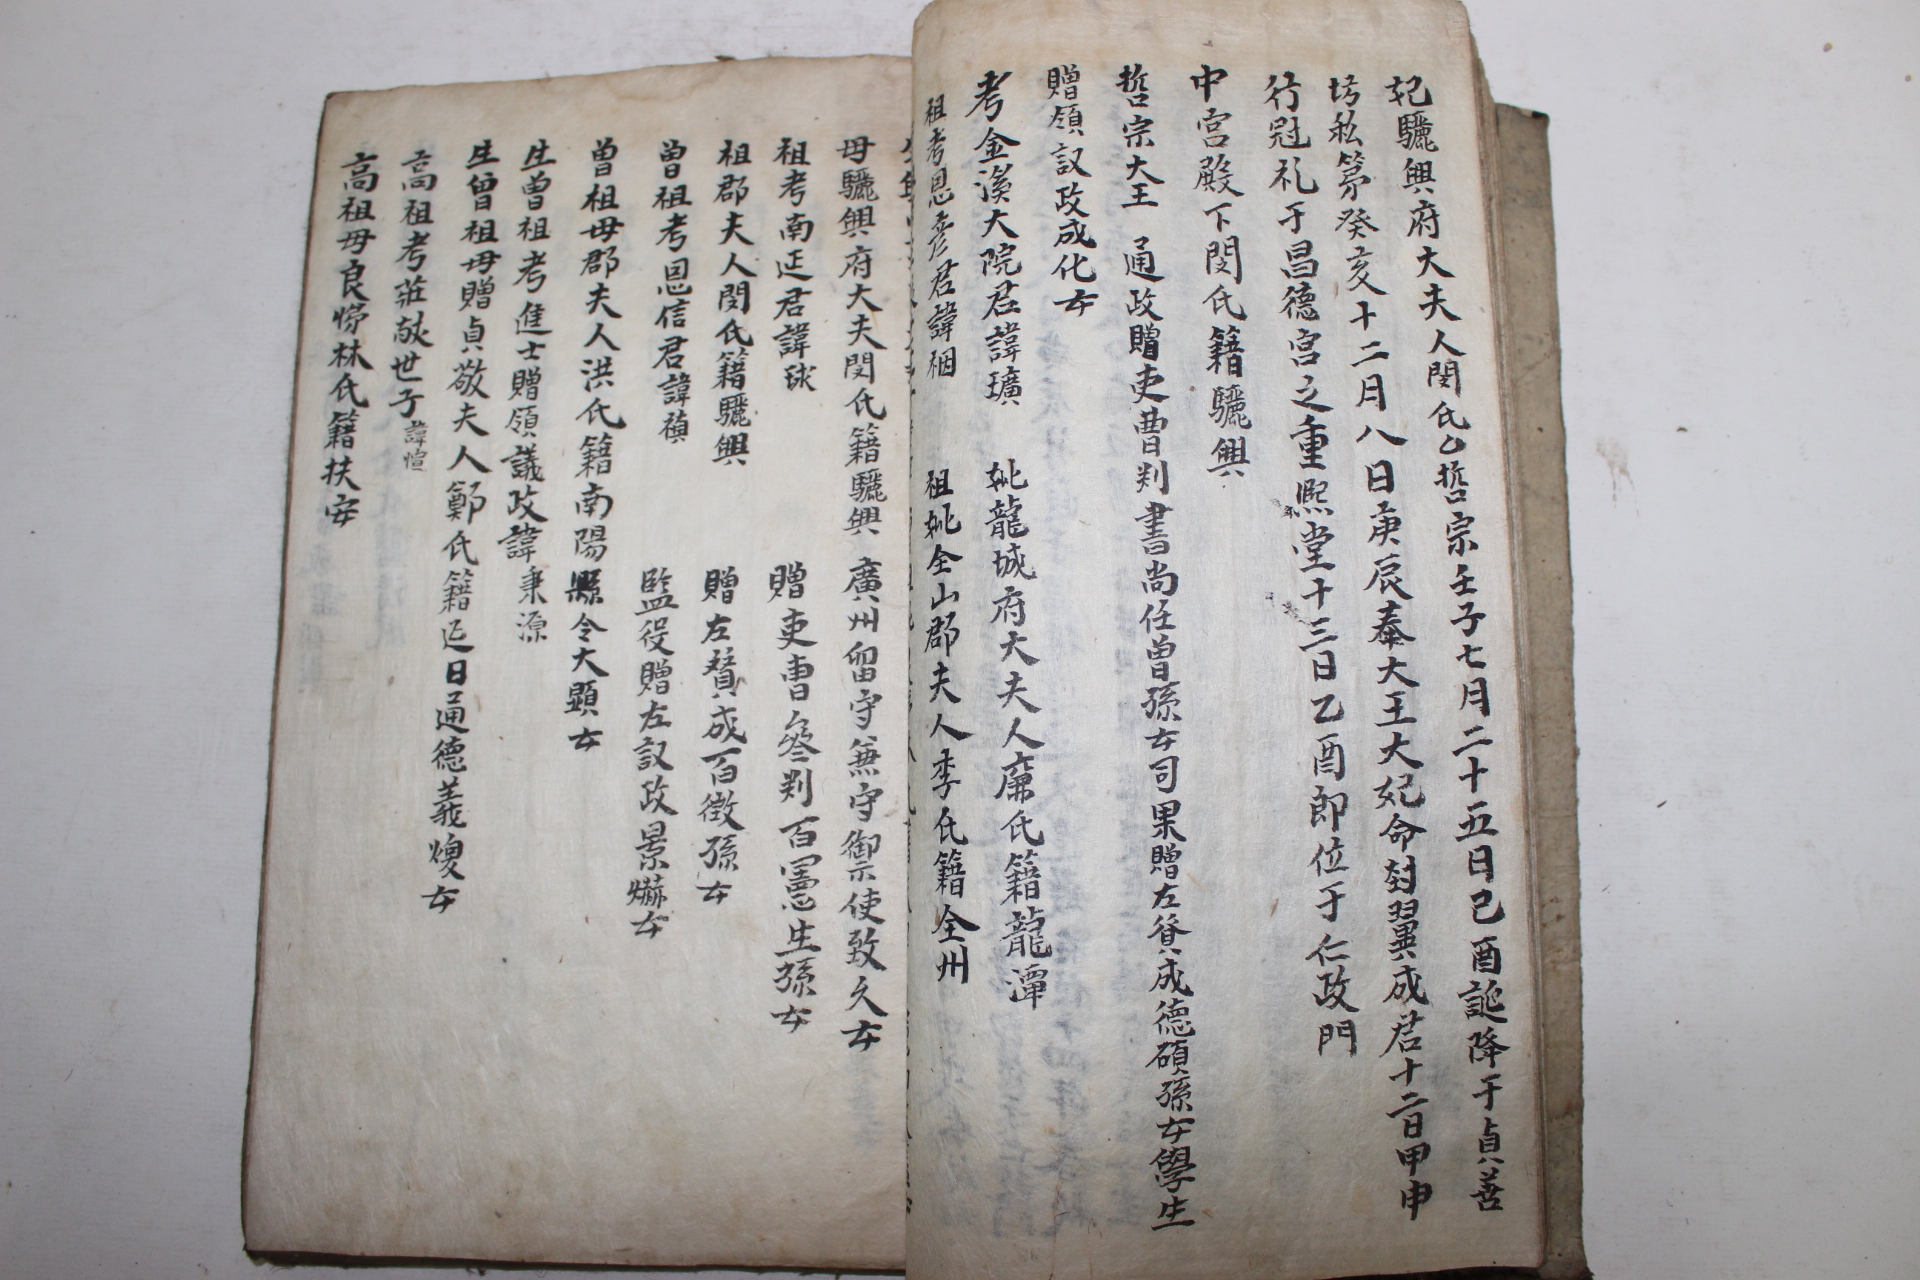 妃驪興府大夫人閔氏以哲宗壬子七月二十五日己酉誕降于貞善
坊私第癸亥十二月八日庚辰奉大王大妃命封翼成君十二日甲申
行冠礼于昌德宮之重熙堂十三日乙酉卽位于仁政門
中宮殿下閔氏籍驪興
哲宗大王 通政贈吏曹判書尚任曾孫女司果贈左賛成德碩孫女學生
贈領議政成化女
考金溪大院君諱㼅 妣龍城府大夫人廉氏籍龍潭
祖考恩彦君諱裀 祖妣全山郡夫人李氏籍全州
母驪興府大夫閔氏籍驪興 廣州留守兼守禦使致久女
祖考南延君諱球
祖郡夫人閔氏籍驪興 贈吏曹參判百憲生孫女
曾祖考恩信君諱禛 贈左贊成百徵孫女
曾祖母郡夫人洪氏籍南陽 監役贈左議政景爀女
縣令大顯女
生曾祖考進士贈領議政諱秉源
生曾祖母贈貞敬夫人鄭氏籍延日通德義㷱女
高祖考莊獻世子諱愃
高祖母良娣林氏籍扶安